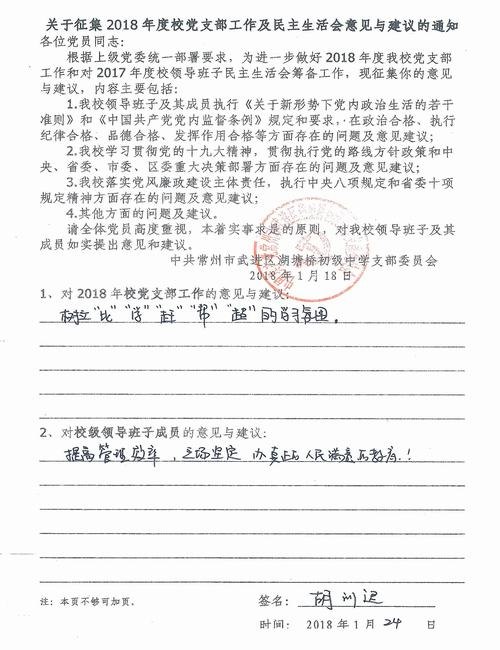 关于征集 2018 年度校党支部工作及民主生活会意见与建议的通知
各位党员同志：
根据上级党委统一部署要求，为进一步做好 2018 年度我校党支部
工作和对 2017 年度校领导班子民主生活会筹备工作，现征集你的意见
与建议，内容主要包括：
1.我校领导班子及其成员执行《关于新形势下党内政治生活的若干
准则》和《中国共产党党内监督条例》规定和要求，在政治合格、执行
纪律合格、品德合格、发挥作用合格等方面存在的问题及意见建议；
2.我校学习贯彻党的十九大精神，贯彻执行党的路线方针政策和中
央、省委、市委、区委重大决策部署方面存在的问题及意见建议；
3.我校落实党风廉政建设主体责任，执行中央八项规定和省委十项
规定精神方面存在的问题及意见建议；
4.其他方面的问题及建议。
请全体党员高度重视，本着实事求是的原则，对我校领导班子及其
成员如实提出意见和建议。
中共常州市武进区湖塘桥初级中学支部委员会
2018 年 1 月 18 日
1、对 2018 年校党支部工作的意见与建议：
树立“比”“学”“赶”“帮”“超”的学习氛围。
2、对校级领导班子成员的意见与建议：
提高管理效率，立场坚定 办真正的人民满意的教育！
注：本页不够可加页。
签名：胡
时间： 2018 年 1 月 24 日